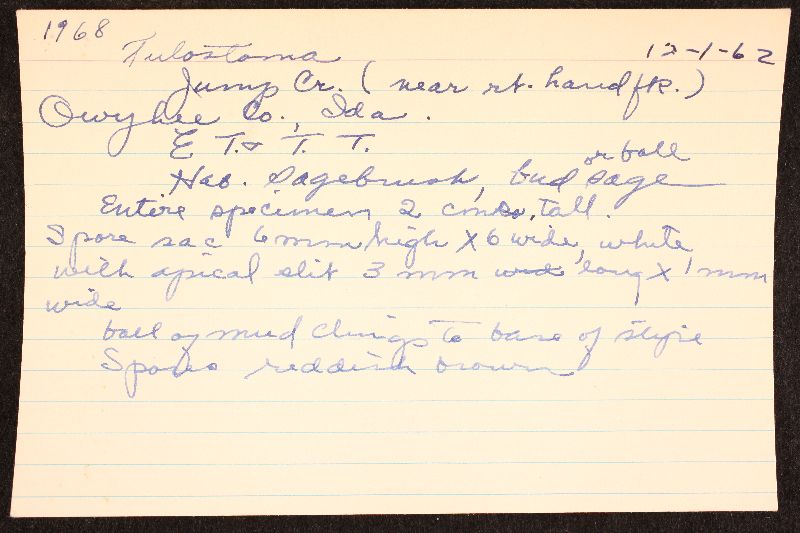 1968
Tulostoma 12-1-62
Jump Cr. (near rt. hand fk.)
Owyhee Co., Ida.
E T. & T. T.
or ball
Hab. Sagebrush, bud sage
Entire specimen 2 cms. tall.
Spore sac 6 mm high X 6 wide, white,
with apical slit 3 mm long X 1 mm
wide
ball of mud clings to base of stipe
Spores reddish brown